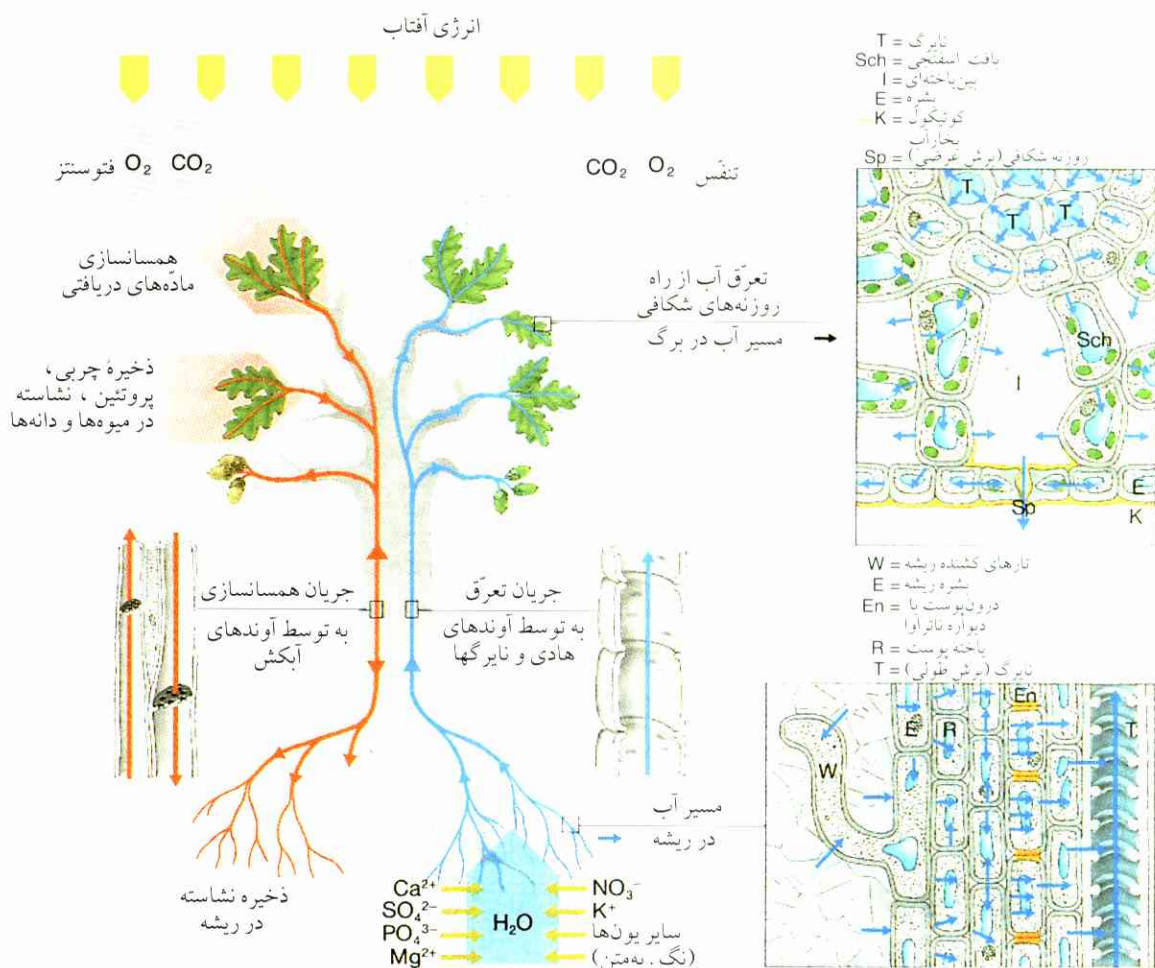 انرژی آفتاب
فتوسنتز O₂ CO₂
CO₂ O₂ تنفّس
همسانسازی
مادّه‌های دریافتی
ذخیرهٔ چربی،
پروتئین ، نشاسته
در میوه‌ها و دانه‌ها
تعرّق آب از راه
روزنه‌های شکافی
مسیر آب در برگ
جریان همسانسازی
به توسط آوندهای
آبکش
جریان تعرّق
به توسط آوندهای
هادی و نایرگها
ذخیره نشاسته
در ریشه
مسیر آب
در ریشه
Ca²⁺
SO₄²⁻
PO₄³⁻
Mg²⁺
H₂O
NO₃⁻
K⁺
سایر یون‌ها
(نگ . به‌متن)
T = نایرگ
Sch = بافت اسفنجی
I = بین‌یاخته‌ای
E = بشره
K = کوتیکول
بخارآب
Sp = روزنه شکافی (برش عرضی)
T
T
T
Sch
I
E
Sp
K
W = تارهای کشنده ریشه
E = بشره ریشه
En = درون‌پوست با
دیواره ناتراوا
R = یاخته پوست
T = نایرگ (برش طولی)
En
E
R
T
W